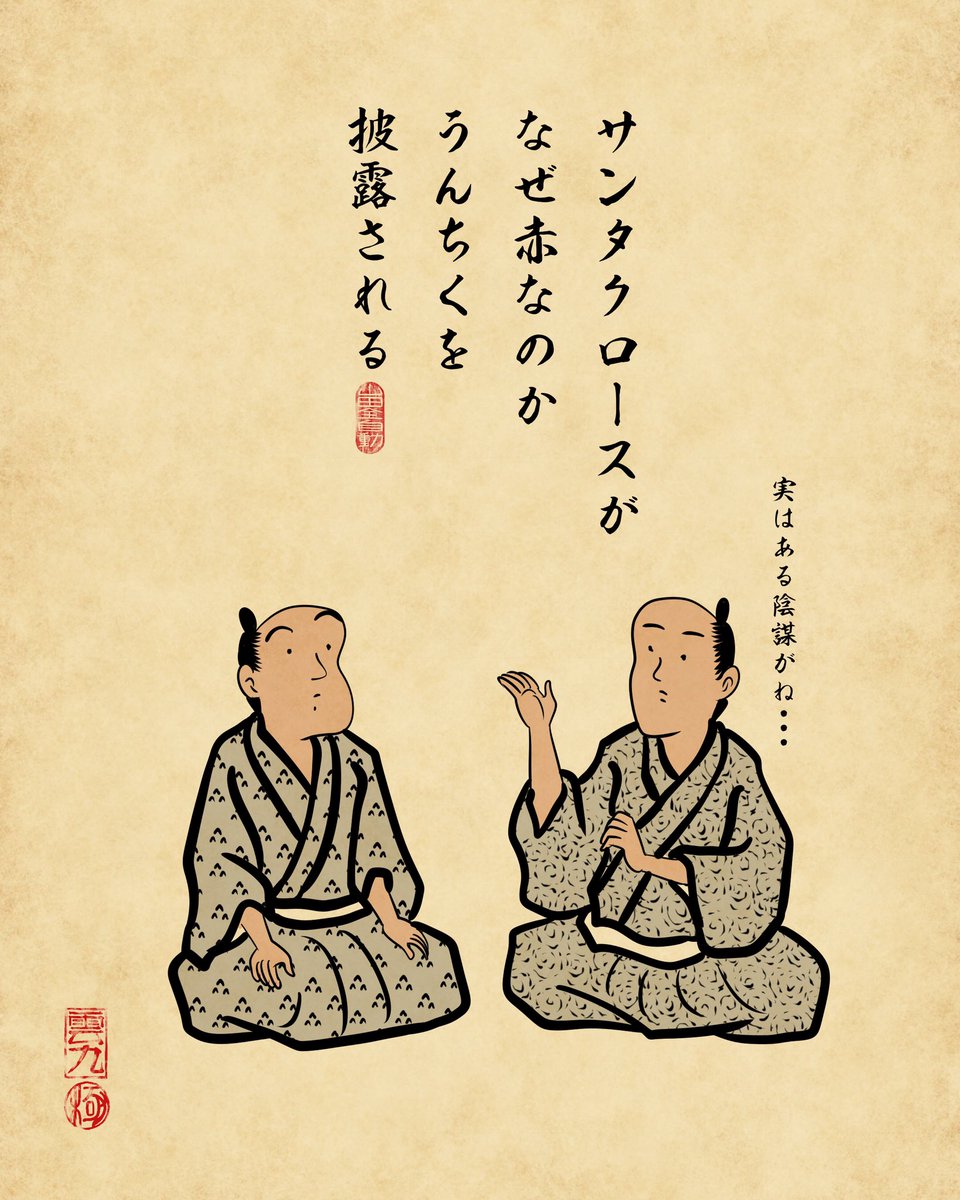 サンタクロースが
なぜ赤なのか
うんちくを
披露される
実はある陰謀がね・・・